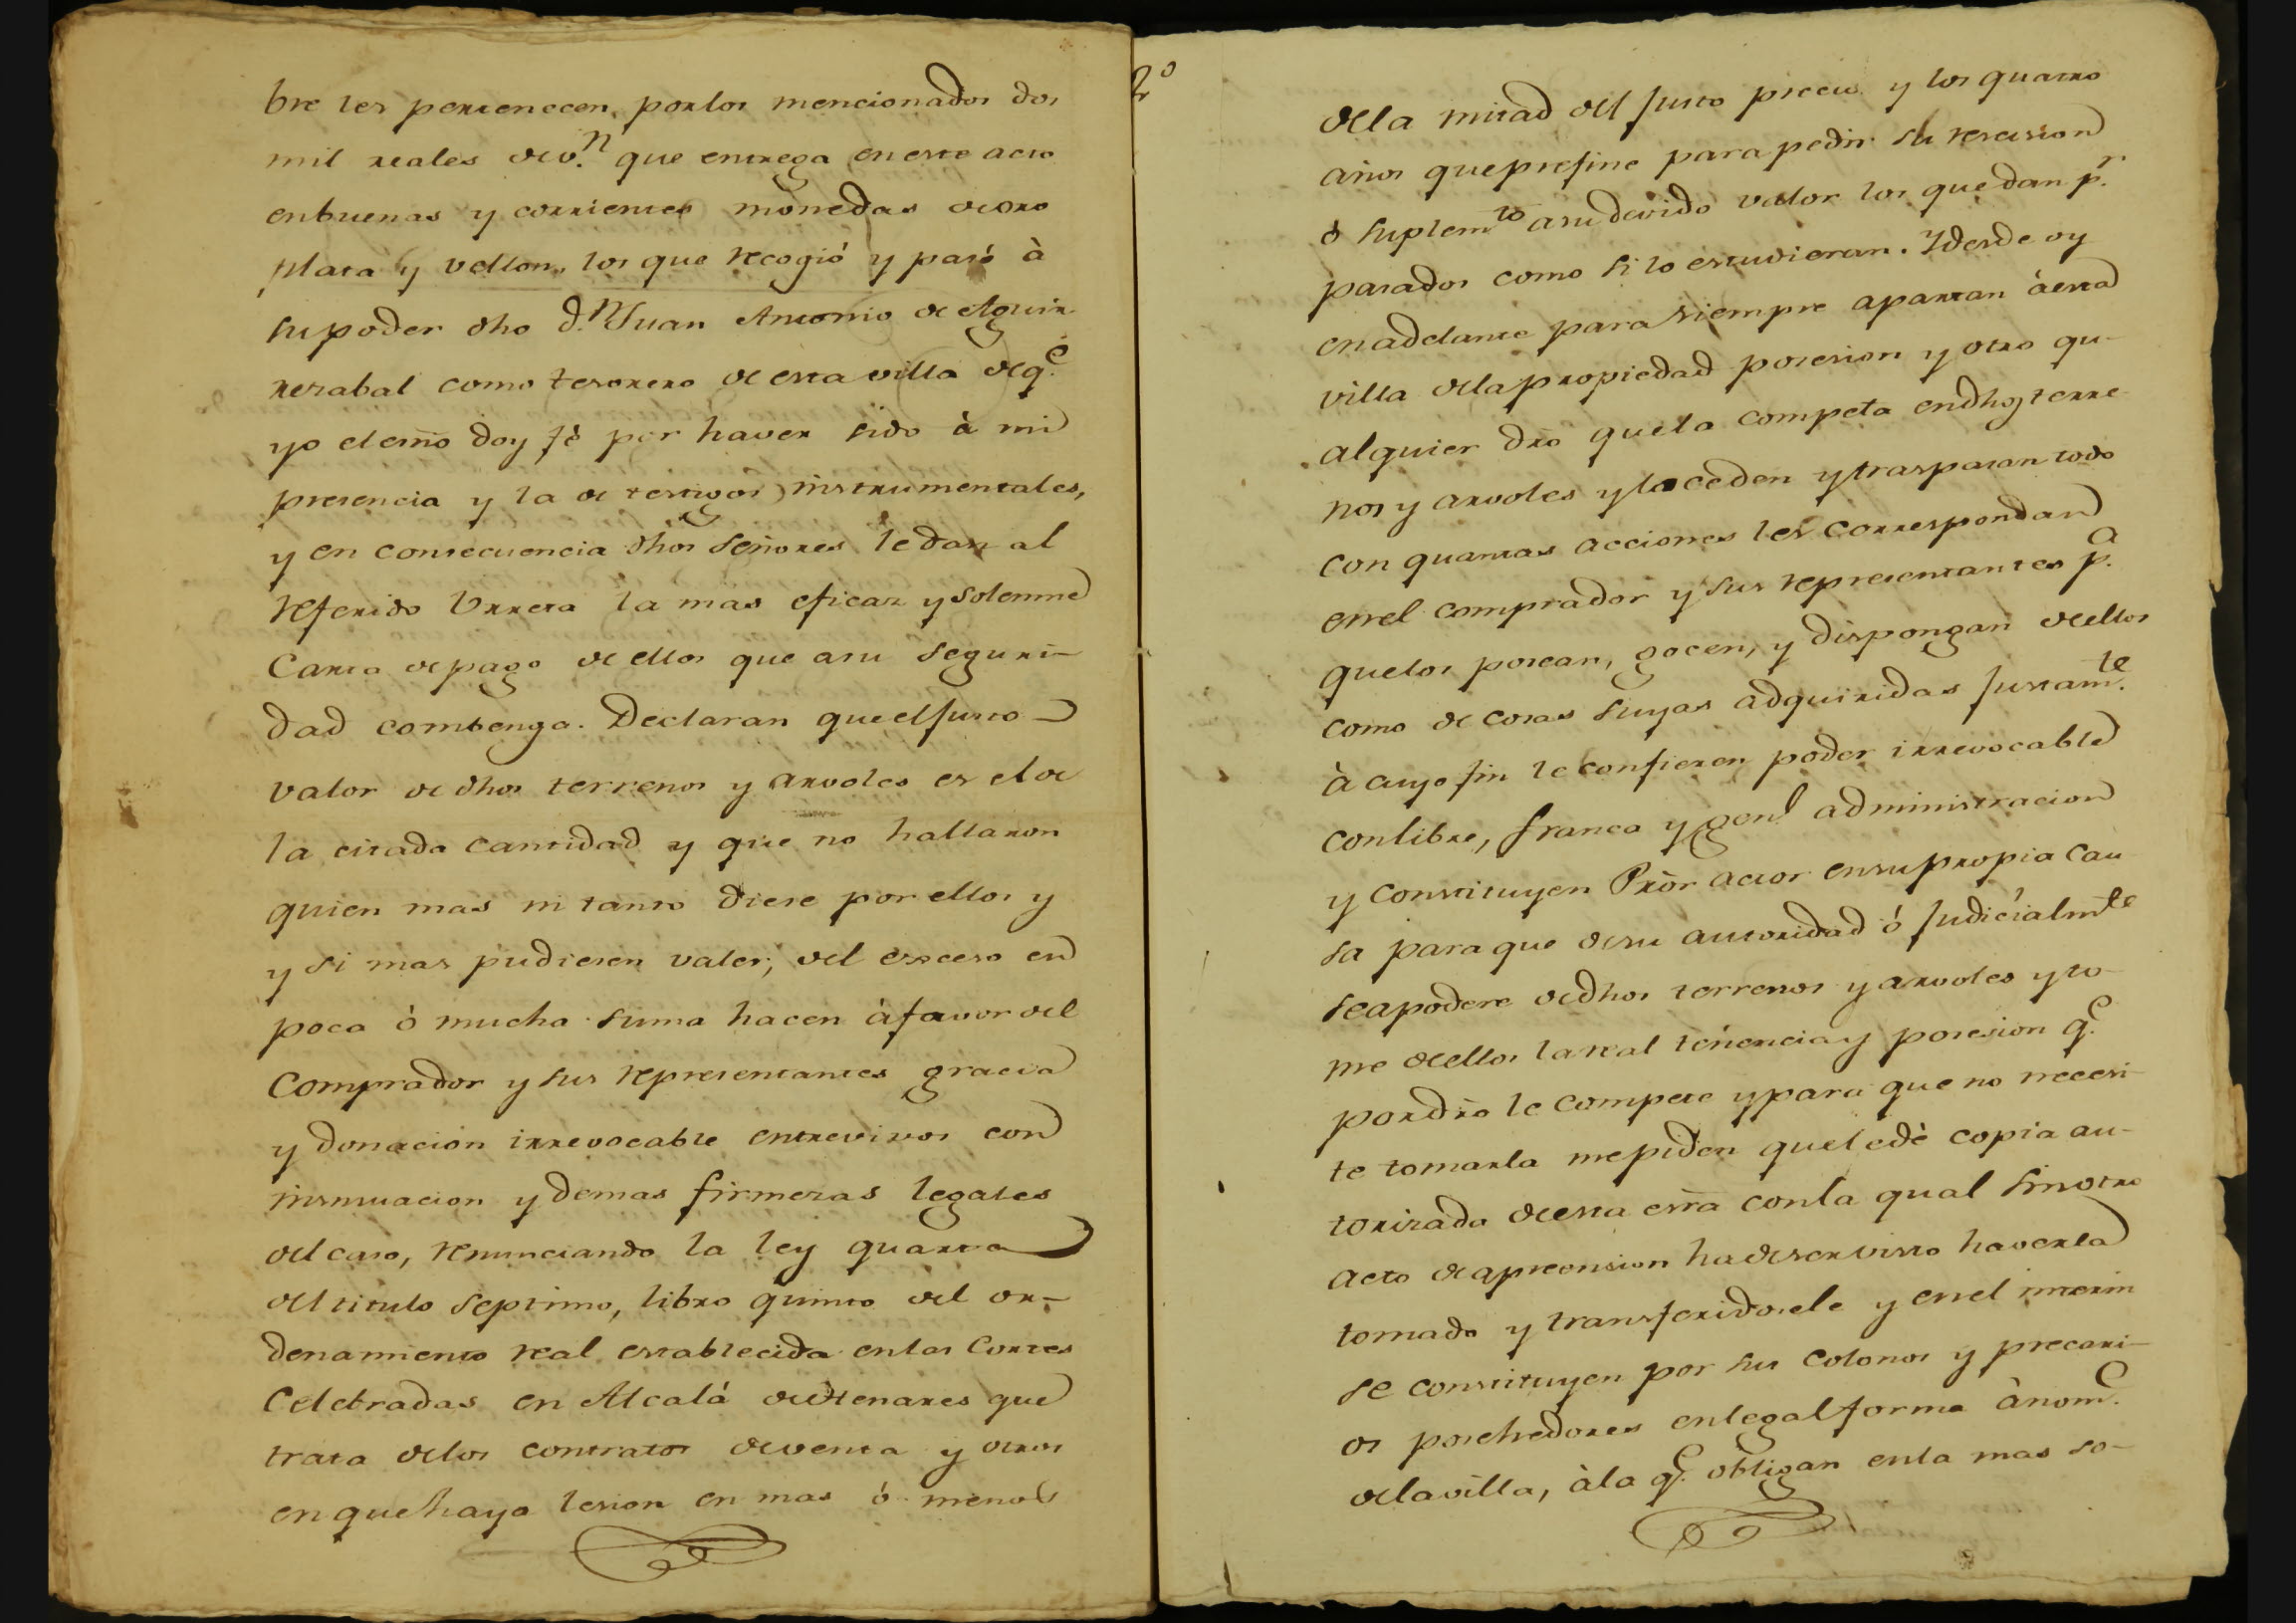 bre les pertenecen, por los mencionados dos
mil reales de v.n que entrega en este acto
en buenas y corrientes monedas de oro
plata y vellon, los que recogió y pasó à
su poder dho d.n Juan Antonio de Aguir
rezabal como tesorero de esta villa de q.e
yo el esno doy fè por haver sido à mi
presencia y la de testigos instrumentales,
y en consecuencia dhos Señores le dan al
referido Urreta la mas eficaz y solemne
Carta de pago de ellos que a su seguri-
dad combenga. Declaran que el justo
valor de dhos terrenos y arvoles es el de
la citada cantidad y que no hallaron
quien mas ni tanto diese por ellos y
y si mas pudiesen valer, del exceso en
poca ò mucha suma hacen à favor del
Comprador y sus representantes gracia
y donacion irrevocable entrevivos con
insinuacion y demas firmezas legales
del caso, renunciando la ley quarta
del titulo septimo, libro quinto del or-
denamiento real establecida en las Cortes
Celebradas en Alcalá de Henares que
trata de los contratos de venta y otros
en que haya lesion en mas ó menos
2º
de la mitad del justo precio y los quatro
años que prefine para pedir su rescision
ò suplem.to a su devido valor los que dan p.r
pasados como si lo estuvieran. Y desde oy
en adelante para siempre apartan à esta
villa de la propiedad posesion y otro qu-
alquier dro que la competa en dhos terre
nos y arvoles y lo ceden y traspasan todo
con quantas acciones les correspondan
en el comprador y sus representantes p.a
que los posean, gocen, y dispongan de ellos
como de cosas suyas adquiridas justam.te
à cuyo fin le confieren poder irrevocable
con libre, franca y gen.l administracion
y constituyen Pròr actor en su propia cau
sa para que de su autoridad ó judicialm.te
se apodere de dhos terrenos y arvoles y to-
me de ellos la real tenencia y posesion q.e
por dro le compete y para que no necesi-
te tomarla me piden que le dè copia au-
torizada de esta esrra con la qual sin otro
acto de aprension ha de ser visto haverla
tomado y transferidosele y en el interin
se constituyen por sus colonos y precari-
os posehedores en legal forma à nom.e
de la villa, à la q.e obligan en la mas so-